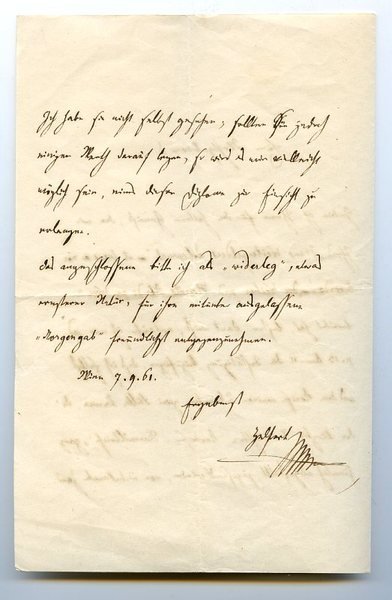 Ich habe sie nicht selbst gesehen; sollten Sie jedoch
einigen Werth darauf legen, so wird es mir vielleicht
möglich sein, eines dieser Diplome zur Einsicht zu
erlangen.
Das angeschlossene bitte ich als „Widerleg", etwas
ernsterer Natur, für Ihre mitunter ausgelassene
„Morgengab" freundlichst entgegenzunehmen.
Wien 7.9.61.
Ergebenst
Helfert